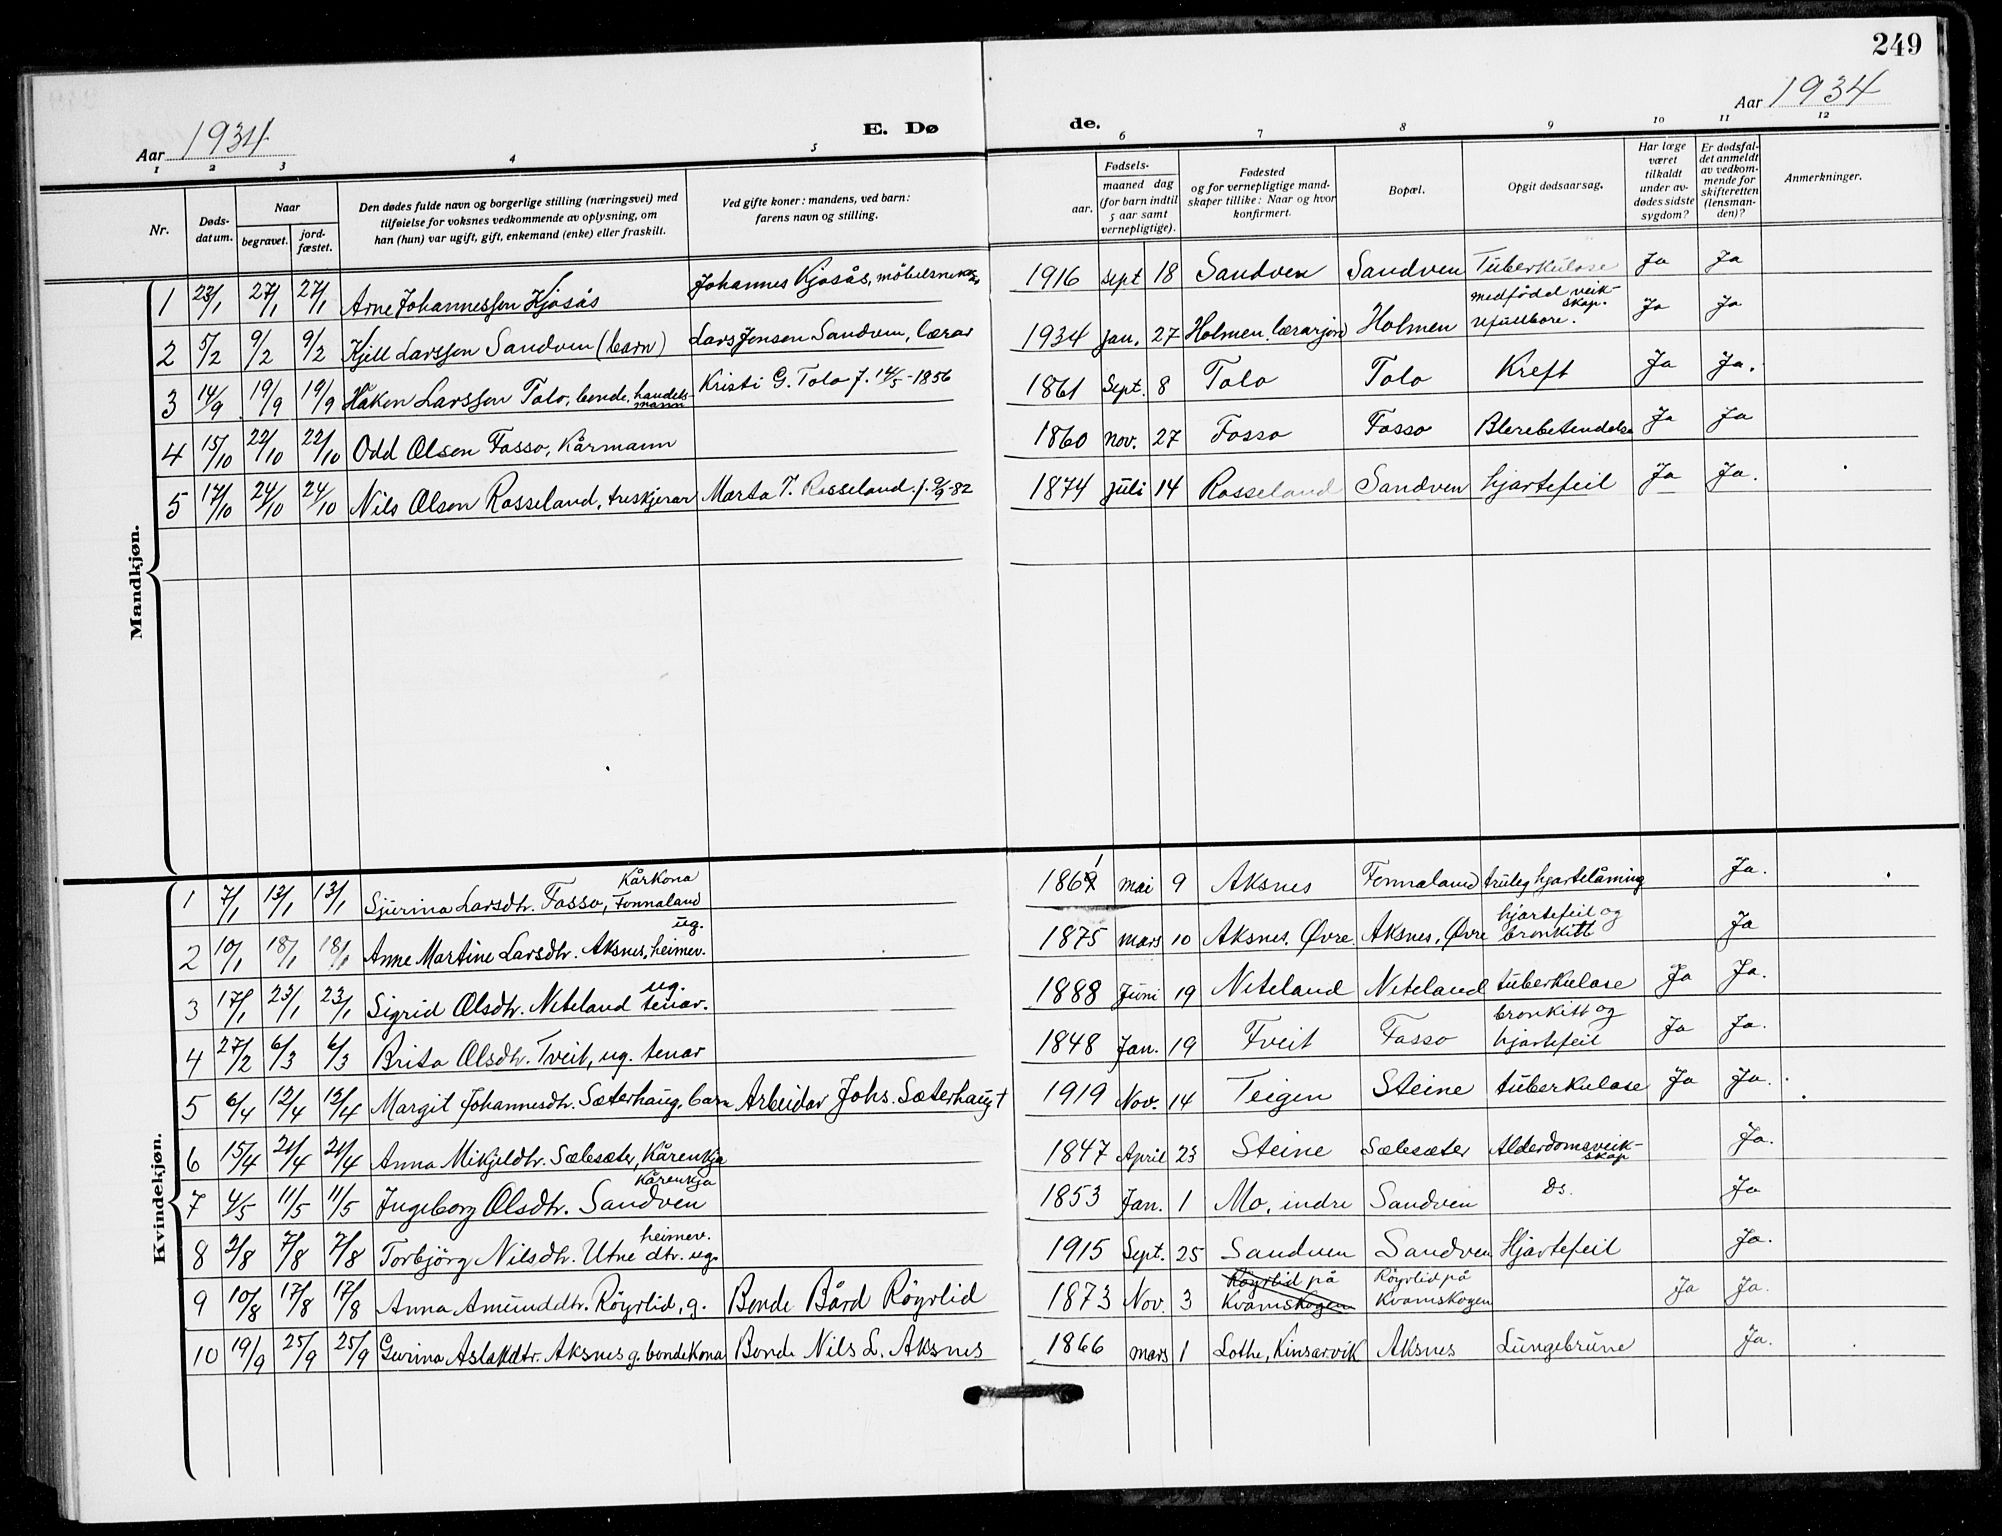 249
Aar 1934
E. Døde.
Aar 1934
1 2 3 4 5 6 7 8 9 10 11 12
Nr.
Døds-datum.
Naar
begravet.
jord-fæstet.
Den dødes fulde navn og borgerlige stilling (næringsvei) med
tilføielse for voksnes vedkommende av oplysning, om
han (hun) var ugift, gift, enkemand (enke) eller fraskilt.
Ved gifte koner: mandens, ved barn:
farens navn og stilling.
aar.
Fødsels-
maaned dag
(for barn indtil
5 aar samt
vernepligtige).
Fødested
og for vernepligtige mand-
skaper tillike: Naar og hvor
konfirmert.
Bopæl.
Opgit dødsaarsag.
Har læge
været
tilkaldt
under av-
dødes sidste
sygdom?
Er dødsfal-
det anmeldt
av vedkom-
mende for
skifteretten
(lensman-
den)?
Anmerkninger.
Mandkjøn.
1 23/1 27/1 27/1 Arne Johannessen Kjosås Johannes Kjosås, 1916 sept 18 Sandven Sandven Tuberkulose Ja Ja
2 5/2 9/2 9/2 Kjell Larssen Sandven (barn) Lars Jensen Sandven, lærar 1934 Jan. 27 Holmen, Holmen medfödd veik-skap. ufullbore. Ja Ja
3 14/9 19/9 19/9 Håkon Larssen Tolo, bonde, handels-mann Kristi G. Tolo f. 14/5-1856 1861 Sept. 8 Tolo Tolo Kreft Ja Ja.
4 15/10 22/10 22/10 Odd Olsen Fosso, Kårmann 1860 Nov. 27 Fosso Fosso Blerebetendelse Ja Ja
5 17/10 24/10 24/10 Nils Olsen Rosseland, treskjerar Marta T. Rosseland. f. 9/9-82 1874 Juli 14 Rosseland Sandven hjartefeil Ja Ja.
Kvindekjøn.
1 7/1 13/1 13/1 Sjurina Larsdtr. Fosso, Kårkona Fonnaland 1861 mai 9 Aksnes Fonnaland truleg hjartelåming Ja.
2 10/1 18/1 18/1 Anne Martine Larsdtr. Aksnes, heimev. ug. 1875 mars 10 Aksnes, Øvre Aksnes, Øvre hjartefeil og bronkitt Ja
3 17/1 23/1 23/1 Sigrid Olsdtr. Neteland ug. tenar. 1888 Juni 19 Neteland Neteland tuberkulose Ja Ja.
4 27/2 6/3 6/3 Brita Olsdtr. Tveit, ug. tenar 1848 Jan. 19 Tveit Fosso bronkitt og hjartefeil Ja Ja.
5 6/4 12/4 12/4 Margit Johannesdtr. Sæterhaug, barn Arbeidar Johs. Sæterhaugt 1919 Nov. 14 Teigen Steine tuberkulose Ja Ja.
6 15/4 21/4 21/4 Anna Mikjeldtr. Sælesæter, Kårenkja 1847 April 23 Steine Sælesæter Alderdomsveik-skap Ja.
7 4/5 11/5 11/5 Ingeborg Olsdtr. Sandven Kårenkja 1853 Jan. 1 Mo, indre Sandven Ds. Ja
8 2/8 7/8 7/8 Torbjörg Nilsdtr. Utne heimev. dtr. ug. 1915 Sept. 25 Sandven Sandven Hjartefeil Ja.
9 10/8 17/8 17/8 Anna Amunddtr. Röyrlid, g. Bonde Bård Röyrlid 1873 Nov. 3 Röyrlid på Kvamskogen Röyrlid på Kvamskogen Ja Ja.
10 19/9 25/9 25/9 Gurina Aslakdtr. Aksnes g. bondekona Bonde Nils L. Aksnes 1866 mars 1 Lothe, Kinsarvik Aksnes Lungebrune Ja.